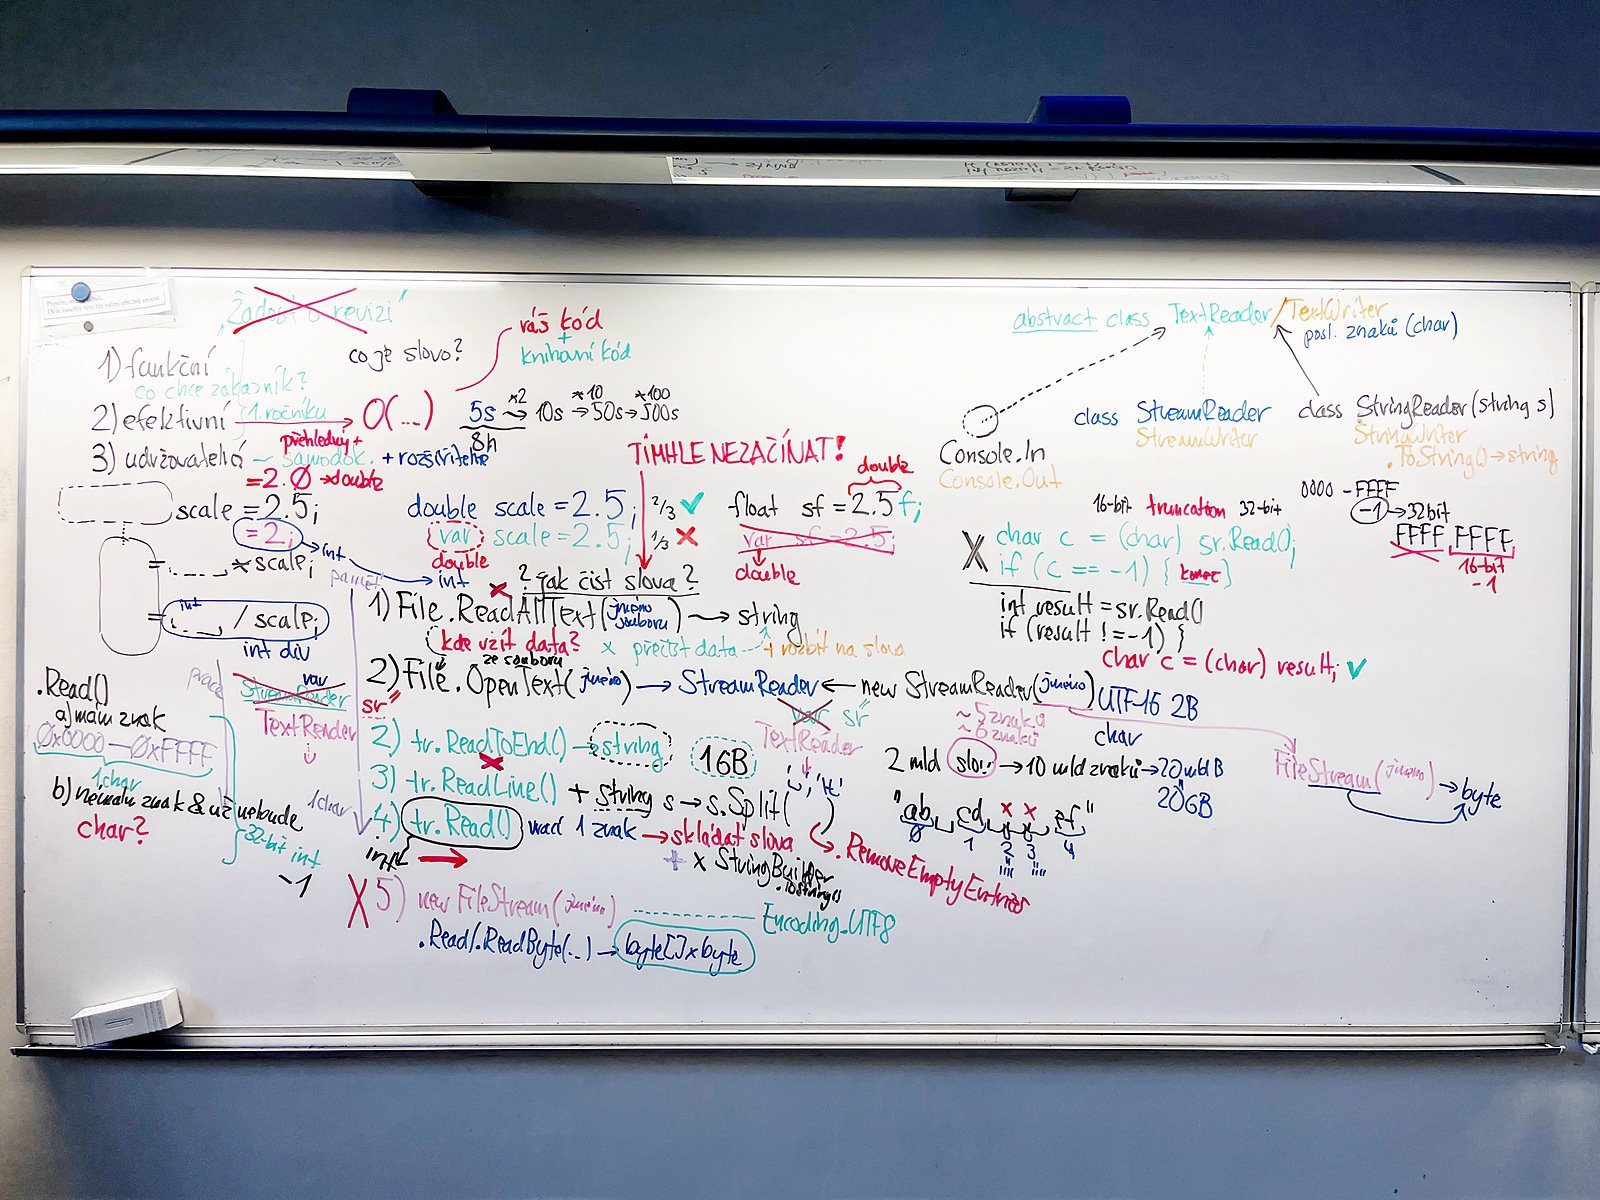 "Žádost o revizi"
1) funkční
co chce zákazník?
co je slovo?
váš kód
+
knihovní kód
2) efektivní
1. ročníku
O(...)
5s
×2
10s
×10
50s
×100
500s
8h
3) udržovatelný
přehledný +
samodok.
+ rozšiřitelné
= 2.0 → double
scale = 2.5;
= 2;
int
* scale;
int
/ scale;
int div
double scale = 2.5;
var scale = 2.5;
double
int
TÍMHLE NEZAČÍNAT!
2/3 ✓
1/3 ✗
double
float sf = 2.5f;
var sf = 2.5;
double
paměť
práce
? jak číst slova?
1) File.ReadAllText(jméno souboru) → string
kde vzít data? × přečíst data + rozbít na slova
ze souboru
2) File.OpenText(jméno) → StreamReader ← new StreamReader(jméno)
sr
var
StreamReader
TextReader
var sr
TextReader
2) tr.ReadToEnd() → string
16B
3) tr.ReadLine() + string s → s.Split( )
' ', '\t'
.RemoveEmptyEntries
4) tr.Read() vrací 1 znak → skládat slova
1 char
int
+ × StringBuilder
.ToString()
X 5) new FileStream(jméno)
Encoding.UTF8
.Read/.ReadByte(..) → byte[] × byte
.Read()
a) mám znak
0x0000 — 0xFFFF
1 char
b) nemám znak & už nebude
char?
32-bit int
-1
abstract class TextReader/TextWriter
posl. znaků (char)
Console.In
Console.Out
class StreamReader
StreamWriter
class StringReader(string s)
StringWriter
.ToString() → string
16-bit truncation 32-bit
X char c = (char) sr.Read();
if (c == -1) { konec }
0000 - FFFF
-1 → 32bit
FFFF FFFF
16-bit
-1
int result = sr.Read()
if (result != -1) {
char c = (char) result; ✓
UTF-16 2B
char
~ 5 znaků
~ 6 znaků
2 mld slov → 10 mld znaků → 20 mld B
20GB
FileStream(jméno) → byte
"ab cd ef"
0 1 2 3 4
"" ""